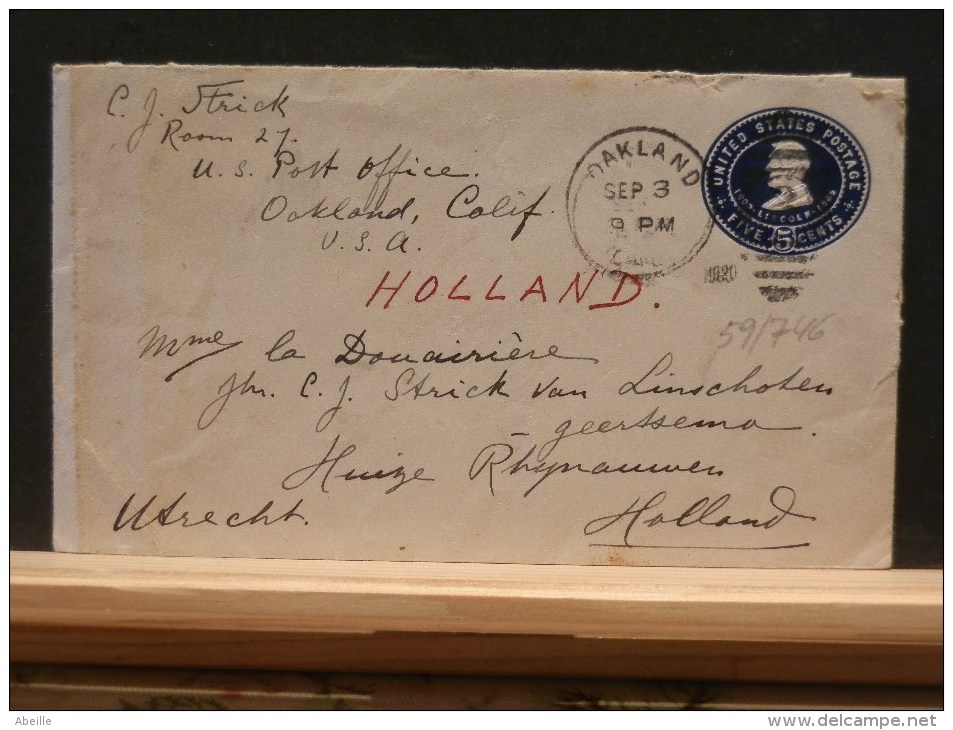 C. J. Strick
Room 27.
U. S. Post Office.
Oakland, Calif.
U. S. A.
OAKLAND
SEP 3
9 PM
CALIF.
1920
UNITED STATES POSTAGE
LINCOLN
FIVE 5 CENTS
HOLLAND.
59/746
Mme la Douairière
Jhr. C. J. Strick van Linschoten
geertsema.
Huize Rhynauwen
Utrecht. Holland
Abeille
www.delcampe.net